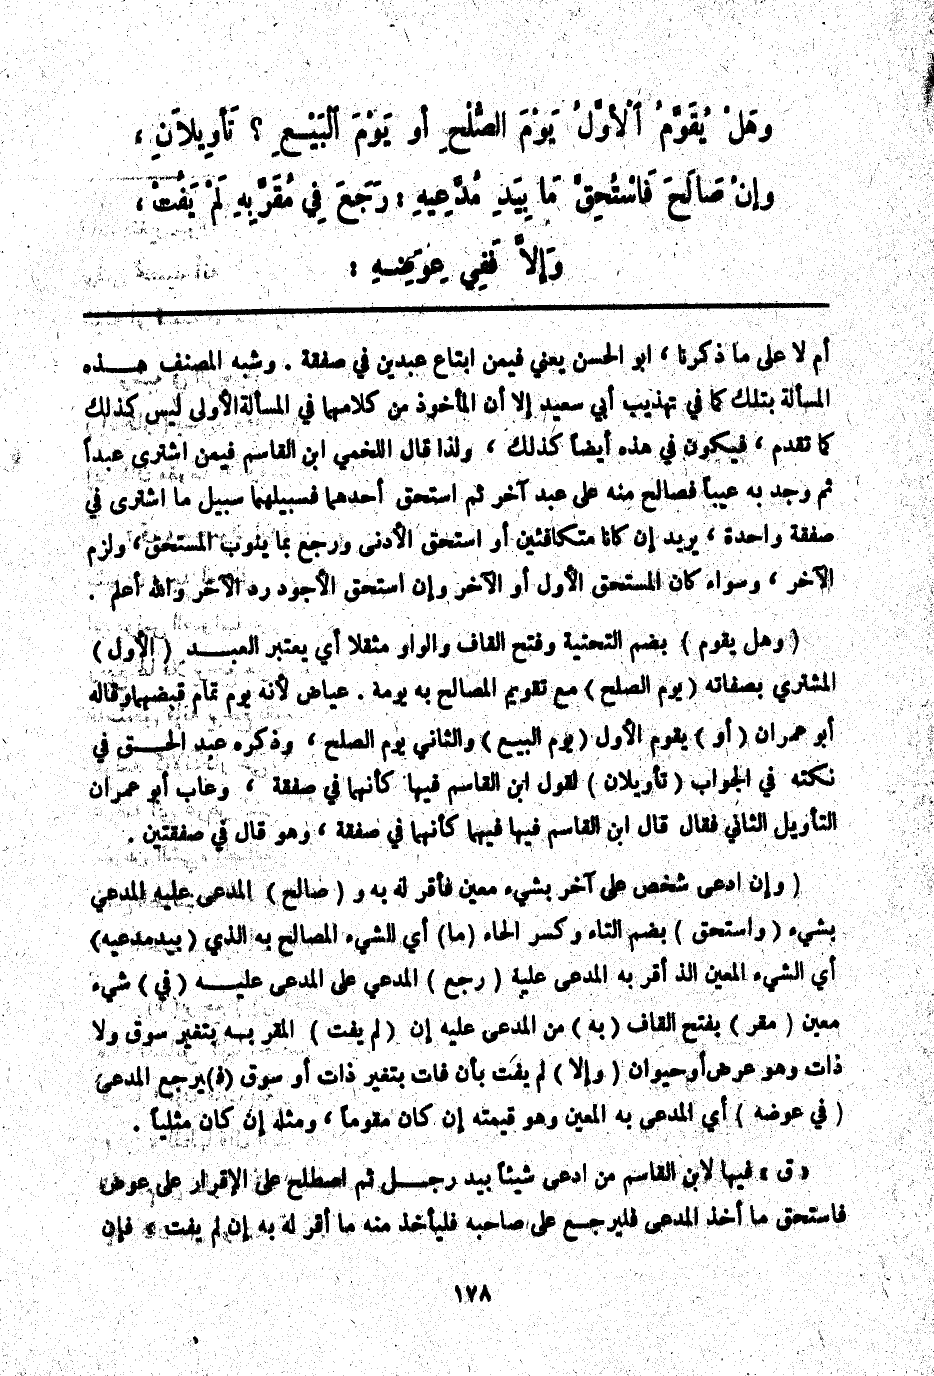 وهَلْ يُقَوَّمُ ٱلْأَوَّلُ يَوْمَ الصُّلْحِ أو يَوْمَ ٱلْبَيْـعِ ؟ تَأوِيلاَنِ ،
وإنْ صَالَحَ فَاسْتُحِقَّ مَا بِيَدِ مُدَّعِيهِ : رَجَعَ فِي مُقَرٍّ بِهِ لَمْ يَفُتْ ،
وَإلاَّ فَفِي عِوَضِـهِ :
أم لا على ما ذكرنا ، ابو الحسن يعني فيمن ابتاع عبدين في صفقة . وشبه المصنف هـــذه
المسألة بتلك كما في تهذيب أبي سعيد إلا أن المأخوذ من كلامهما في المسألةالأولى ليس كذلك
كما تقدم ، فيكون في هذه أيضاً كذلك ، ولذا قال اللخمي ابن القاسم فيمن اشترى عبداً
ثم وجد به عيباً فصالح منه على عبد آخر ثم استحق أحدهما فسبيلهما سبيل ما اشترى في
صفقة واحدة ، يريد إن كانا متكافئين أو استحق الأدنى ورجع بما ينوب المستحق، ولزم
الآخر ، وسواء كان المستحق الأول أو الآخر وإن استحق الأجود رد الآخر والله أعلم .
( وهل يقوم ) بضم التحتية وفتح القاف والواو مثقلا أي يعتبر العبـــد ( الأول )
المشتري بصفاته ( يوم الصلح ) مع تقويم المصالح به يومة . عياض لأنه يوم تمام قبضهماوقاله
أبو عمران ( أو ) يقوم الأول ( يوم البيـع ) والثاني يوم الصلح ، وذكره عبد الحـــق في
نكته في الجواب ( تأويلان ) لقول ابن القاسم فيها كأنهما في صفقة ، وعاب أبو عمران
التأويل الثاني فقال قال ابن القاسم فيها فيهما كأنهما في صفقة ، وهو قال في صفقتين .
( وإن ادعى شخص على آخر بشيء معين فأقر له به و ( صالح ) المدعى عليه المدعي
بشيء ( واستحق ) بضم التاء وكسر الحاء (ما) أي الشيء المصالح به الذي ( بيدمدعيه)
أي الشيء المعين الذ أقر به المدعى علية ( رجع ) المدعي على المدعى عليـــه ( في ) شيء
معين ( مقر ) بفتح القاف ( به ) من المدعى عليه إن ( لم يفت ) المقر بـه بتغير سوق ولا
ذات وهو عرض‌أوحيوان ( وإلا ) لم يفت بأن فات بتغير ذات أو سوق (ف)يرجع المدعى
( في عوضه ) أي المدعى به المعين وهو قيمته إن كان مقوماً ، ومثله إن كان مثلياً .
« ق » فيها لابن القاسم من ادعى شيئاً بيد رجـــل ثم اصطلح على الإقرار على عوض
فاستحق ما أخذ المدعى فليرجـع على صاحبه فليأخذ منه ما أقر له به إن لم يفت » فإن
١٧٨